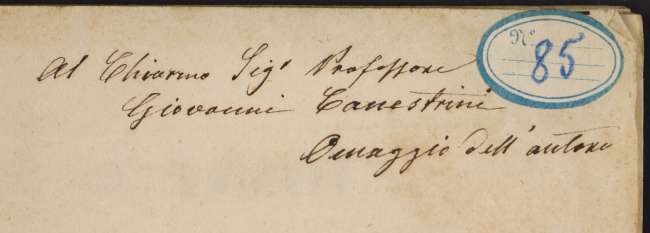 Nº 85
Al Chiarmo Sigr Professore
Giovanni Canestrini
Omaggio dell'autore